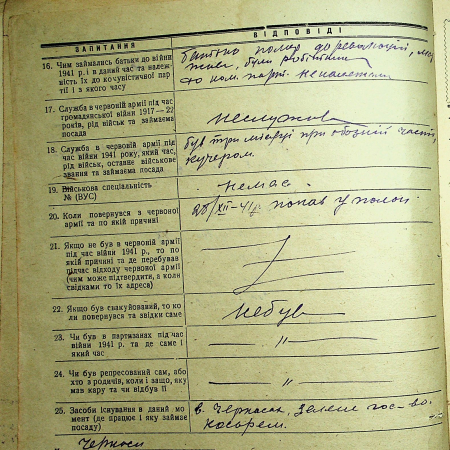 ЗАПИТАННЯ
ВІДПОВІДІ
16. Чим займались батьки до війни
1941 р. і в даний час та належ-
ність їх до комуністичної пар-
тії і з якого часу
батько помер до революції,
жив, були робітники
до ком. парт. неналежали
17. Служба в червоній армії під час
громадянської війни 1917—22
років, рід військ та займаєма
посада
неслужив
18. Служба в червоній армії під
час війни 1941 року, який час,
рід військ, останнє військове
звання та займаєма посада
був три місяці при обозній часті
кучером.
19. Військова спеціальність
№ (ВУС)
немає
20. Коли повернувся з червоної
армії та по якій причині
28/XII-41р. попав у полон
21. Якщо не був в червоній армії
під час війни 1941 р., то по
якій причині та де перебував
підчас відходу червоної армії
(чим може підтвердити, а коли
свідками то їх адреса)
22. Якщо був евакуйований, то ко-
ли повернувся та звідки саме
небув
23. Чи був в партизанах під час
війни 1941 р. та де саме і
який час
— " —
24. Чи був репресований сам, або
хто з родичів, коли і защо, яку
мав кару та чи відбув її
— " —
25. Засоби існування в даний мо-
мент (де працює і яку займає
посаду)
в. Черкасах, Зелене гос-во
косарем.
Черкаси